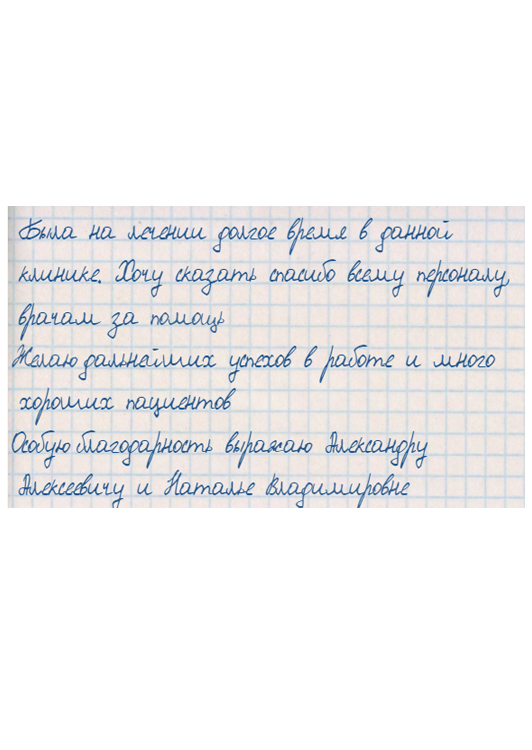 Была на лечении долгое время в данной
клинике. Хочу сказать спасибо всему персоналу,
врачам за помощь
Желаю дальнейших успехов в работе и много
хороших пациентов
Особую благодарность выражаю Александру
Алексеевичу и Наталье Владимировне